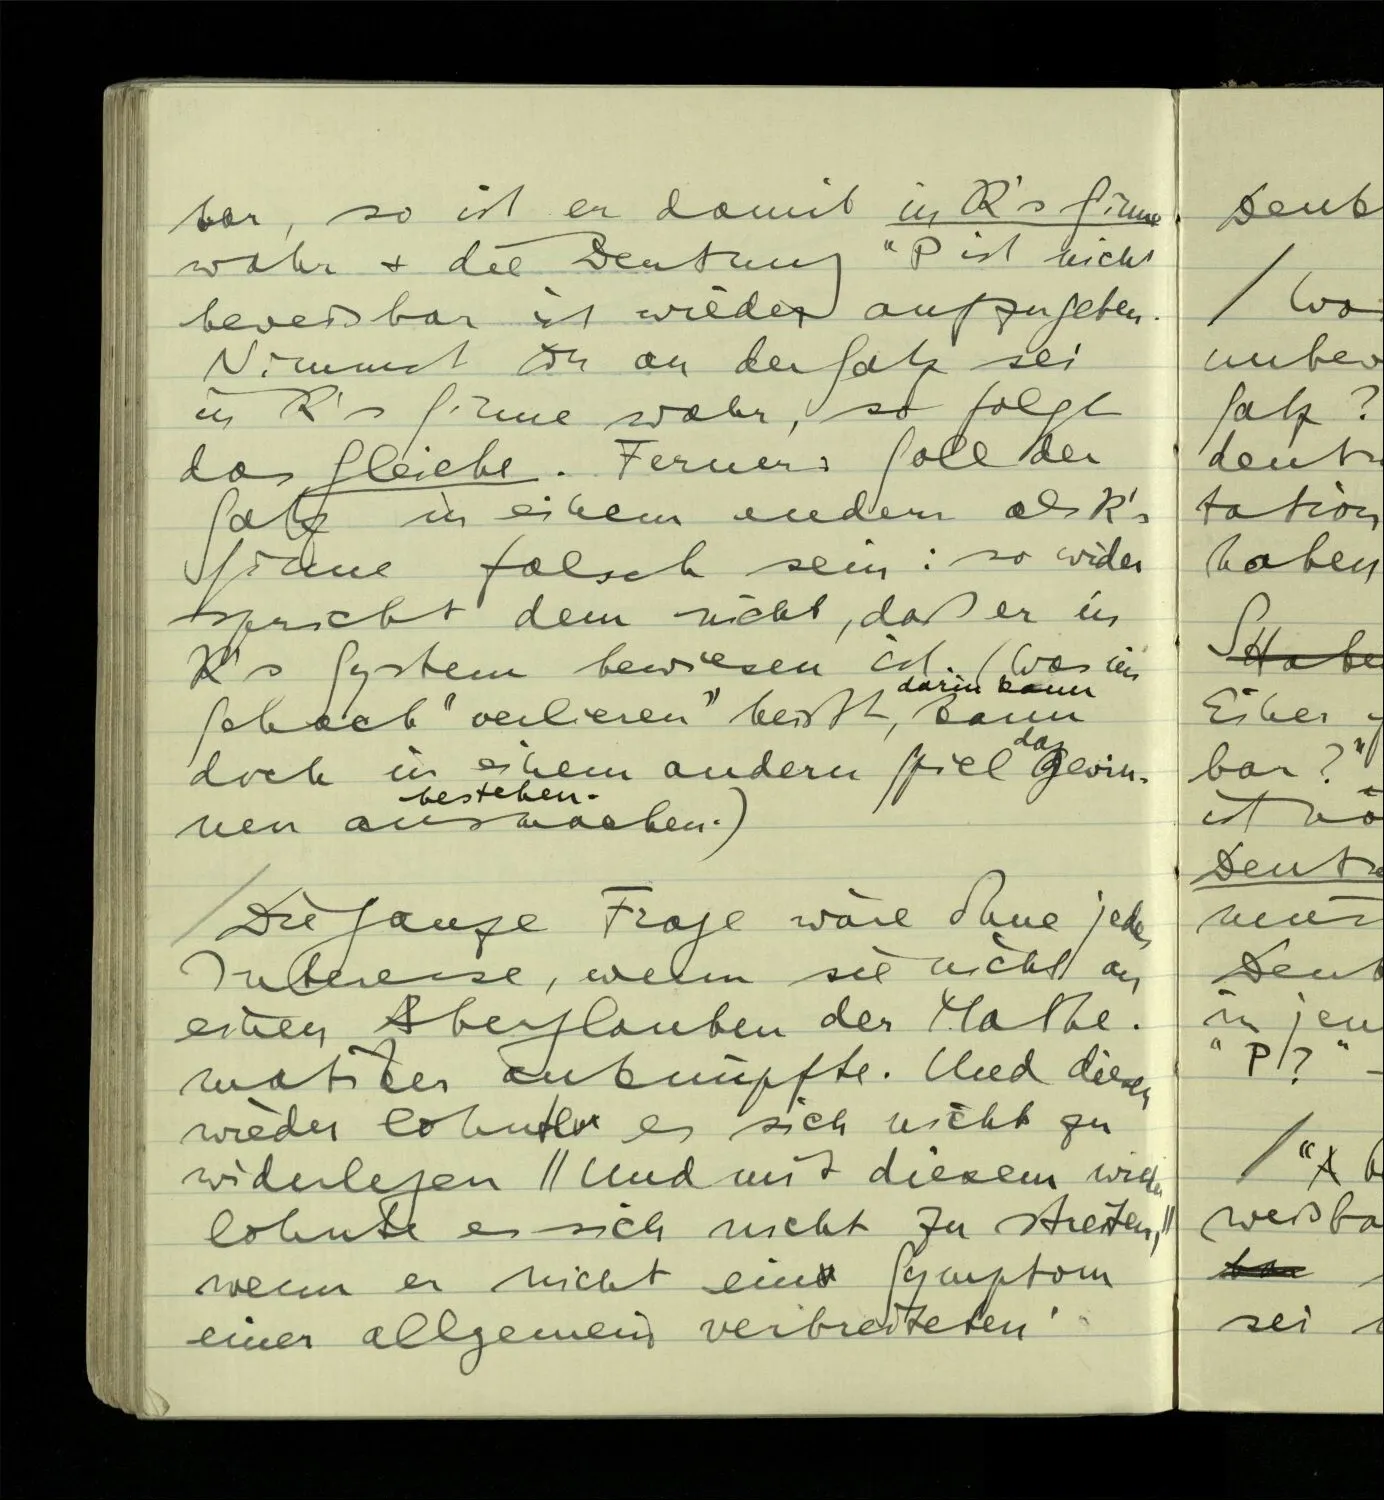 bar, so ist er damit in R's Sinne
wahr & die Deutung "P ist nicht
beweisbar ist wieder aufzugeben.
Nimmst Du an der Satz sei
in R's Sinne wahr, so folgt
das Gleiche. Ferners soll der
Satz in einem andern als R's
Sinne falsch sein: so wider
spricht dem nicht, daß er in
R's System bewiesen ist. (Was im
darin kann
Schach "verlieren" heißt, kann
das
doch in einem andern Spiel Gewin-
bestehen.
nen ausmachen.)
/ Die ganze Frage wäre ohne jedes
Interesse, wenn sie nicht an
einen Aberglauben der Mathe-
matiker anknüpfte. Und diesen
wieder lohnte es sich nicht zu
widerlegen || Und mit diesem wieder
lohnte es sich nicht zu streiten, ||
wenn er nicht ein Symptom
einer allgemein verbreiteten
Deut
/ Wa
unbew
Satz?
deut
tation
haben
Habe
Einer
bar?"
ist nö
Deut
mus
Deut
in jen
"P?" –
/ "X b
weisba
bar
sei